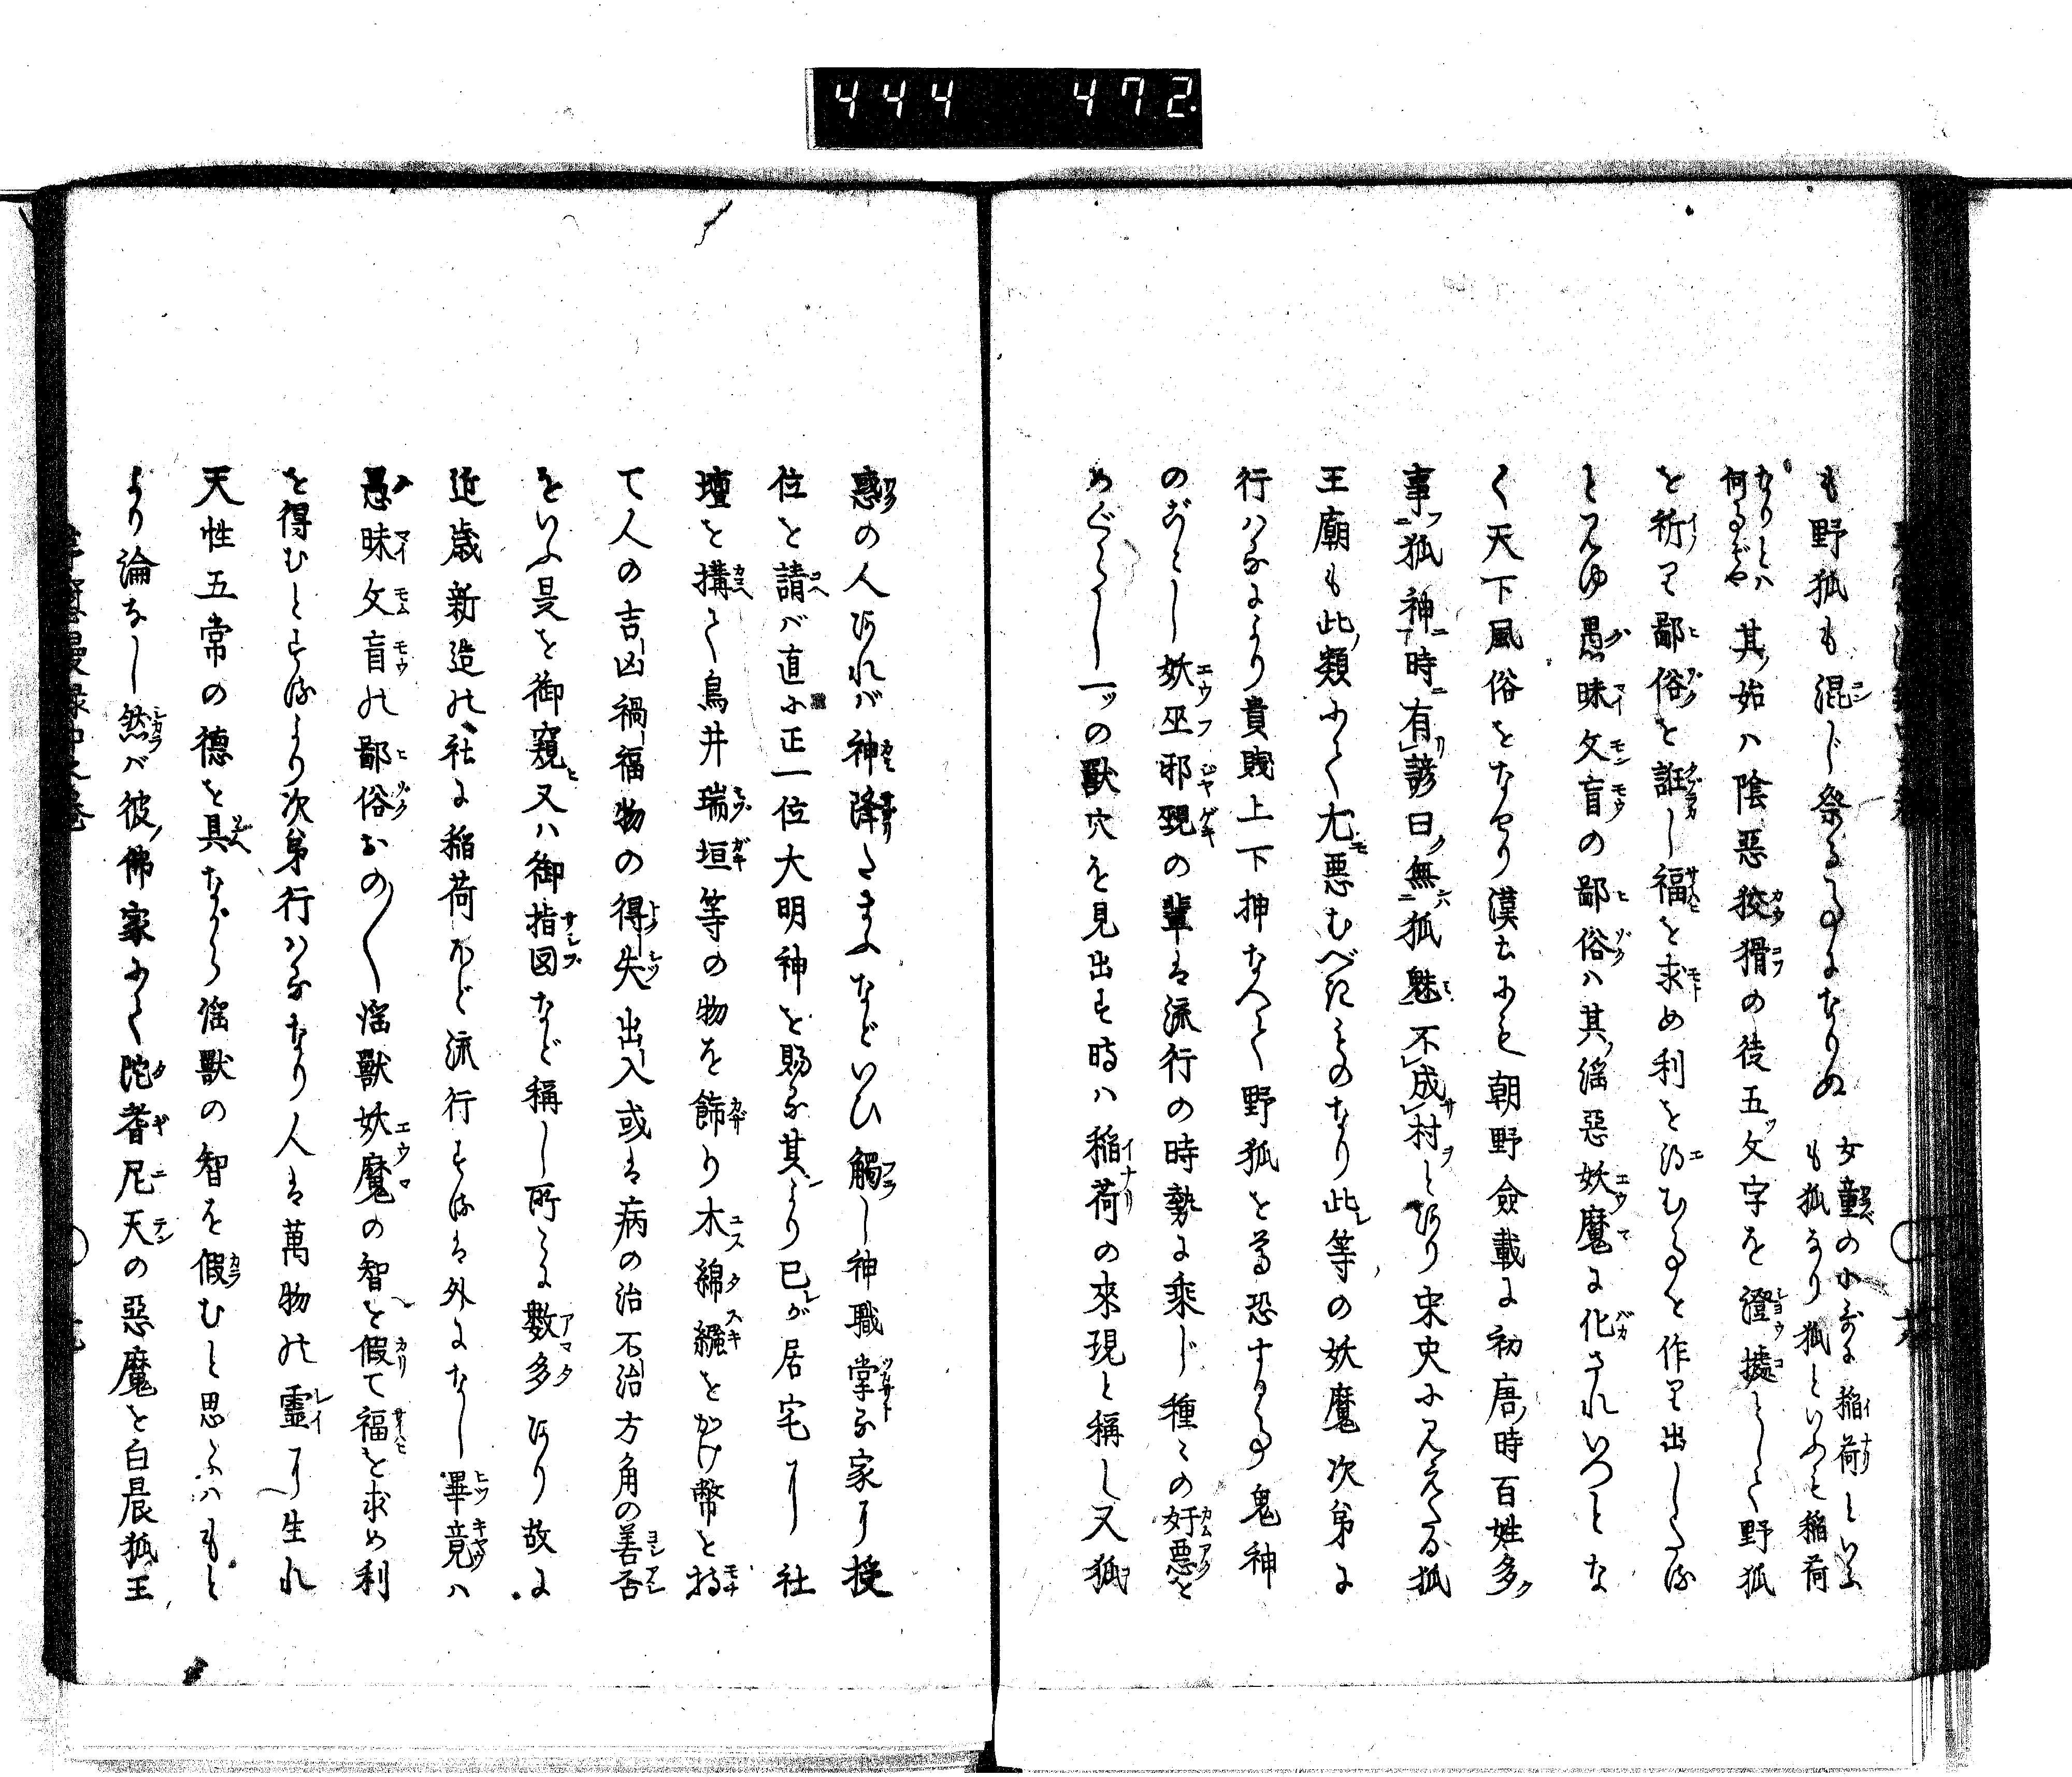 444 472
も野狐も混じ祭る事になりぬ 女童の小哥に稲荷といふ
も狐なり狐といふも稲荷
なりとハ
何事ぞや 其始ハ陰惡狡猾の徒五ッ文字を證據として野狐
を祈りて鄙俗を誑し福を求め利を得むる事を作り出したる
と見ゆ愚昧文盲の鄙俗ハ其滛惡妖魔に化されいつとな
く天下風俗をなせり漢土にても朝野僉載に初唐時百姓多ク
事フ狐神ニ時ニ有リ諺曰無六狐魅不成サ村ヲとあり宋史に見えたる狐
王廟も此類にて尤惡むべきものなり此等の妖魔次弟に
行ハるより貴賤上下押なへて野狐を尊恐する事鬼神
のごとし妖巫邪覡の輩は流行の時勢に乘じ種々の奸惡を
めぐらし一ッの獸穴を見出す時ハ稲荷の來現と稱し又狐
惑の人あれば神降たまふなどいひ觸し神職掌る家より授
位を請ば直に正一位大明神を賜る其より已が居宅に社
壇を搆て鳥井瑞垣等の物を飾り木綿繦をかけ幣を持
て人の吉凶禍福物の得失出入或は病の治不治方角の善否
をいふ是を御窺又ハ御指図など稱し所々に數多あり故に
近歳新造の社に稲荷ほど流行するは外になし畢竟ハ
愚昧文盲の鄙俗おの〱滛獸妖魔の智を假て福を求め利
を得むとするより次弟行ハるなり人は萬物の靈に生れ
天性五常の德を具ながら滛獸の智を假むと思ふハもと
より論なし然バ彼佛家にて陀耆尼天の惡魔を白晨狐王